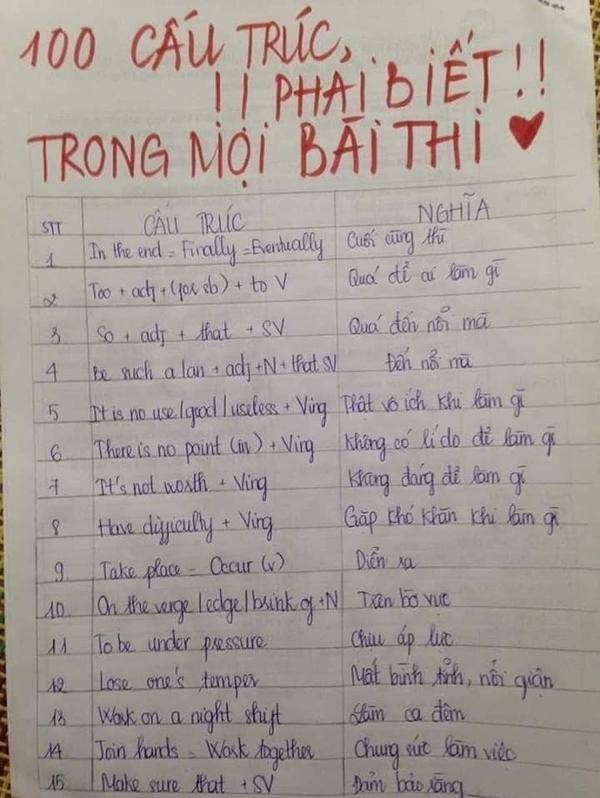 100 CẤU TRÚC,
!! PHẢI BIẾT!!
TRONG MỌI BÀI THI
STT CẤU TRÚC NGHĨA
1 In the end = Finally = Eventually Cuối cùng thì
2 Too + adj + (for sb) + to V Quá để ai làm gì
3 So + adj + that + SV Quá đến nỗi mà
4 Be such a/an + adj + N + that SV Đến nỗi mà
5 It is no use/good/useless + Ving Thật vô ích khi làm gì
6 There is no point (in) + Ving Không có lí do để làm gì
7 It's not worth + Ving Không đáng để làm gì
8 Have difficulty + Ving Gặp khó khăn khi làm gì
9 Take place = Occur (v) Diễn ra
10 On the verge/edge/brink of + N Trên bờ vực
11 To be under pressure Chịu áp lực
12 Lose one's temper Mất bình tĩnh, nổi giận
13 Work on a night shift Làm ca đêm
14 Join hands = Work together Chung sức làm việc
15 Make sure that + SV Đảm bảo rằng